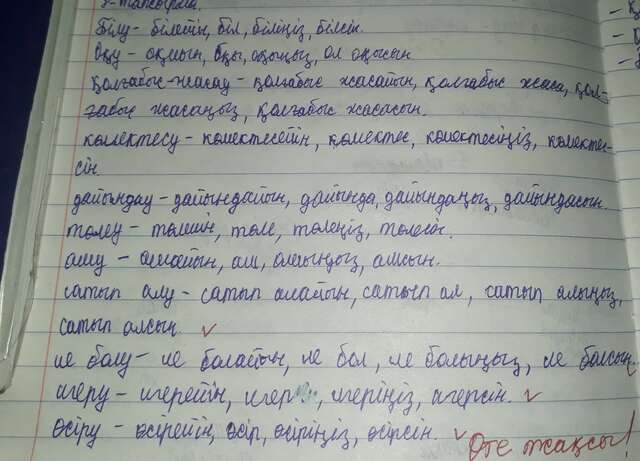 3-тапсырма.
Білу - білейін, біл, біліңіз, білсін.
Оқу - оқиын, Оқы, оқыңыз, ол оқысын
Қолғабыс-жасау - қолғабыс жасайын, қолғабыс жаса, қол-
ғабыс жасаңыз, қолғабыс жасасын.
көмектесу - көмектесейін, көмектес, көмектесіңіз, көмектес-
сін.
дайындау - дайындайын, дайында, дайындаңыз, дайындасын.
төлеу - төлейін, төле, төлеңіз, төлесін.
алу - алайын, ал, алыңыз, алсын.
сатып алу - сатып алайын, сатып ал, сатып алыңыз,
сатып алсын
ие болу - ие болайын, ие бол, ие болыңыз, ие болсын.
игеру - игерейін, игер, игеріңіз, игерсін.
өсіру - өсірейін, өсір, өсіріңіз, өсірсін.
Өте жақсы!